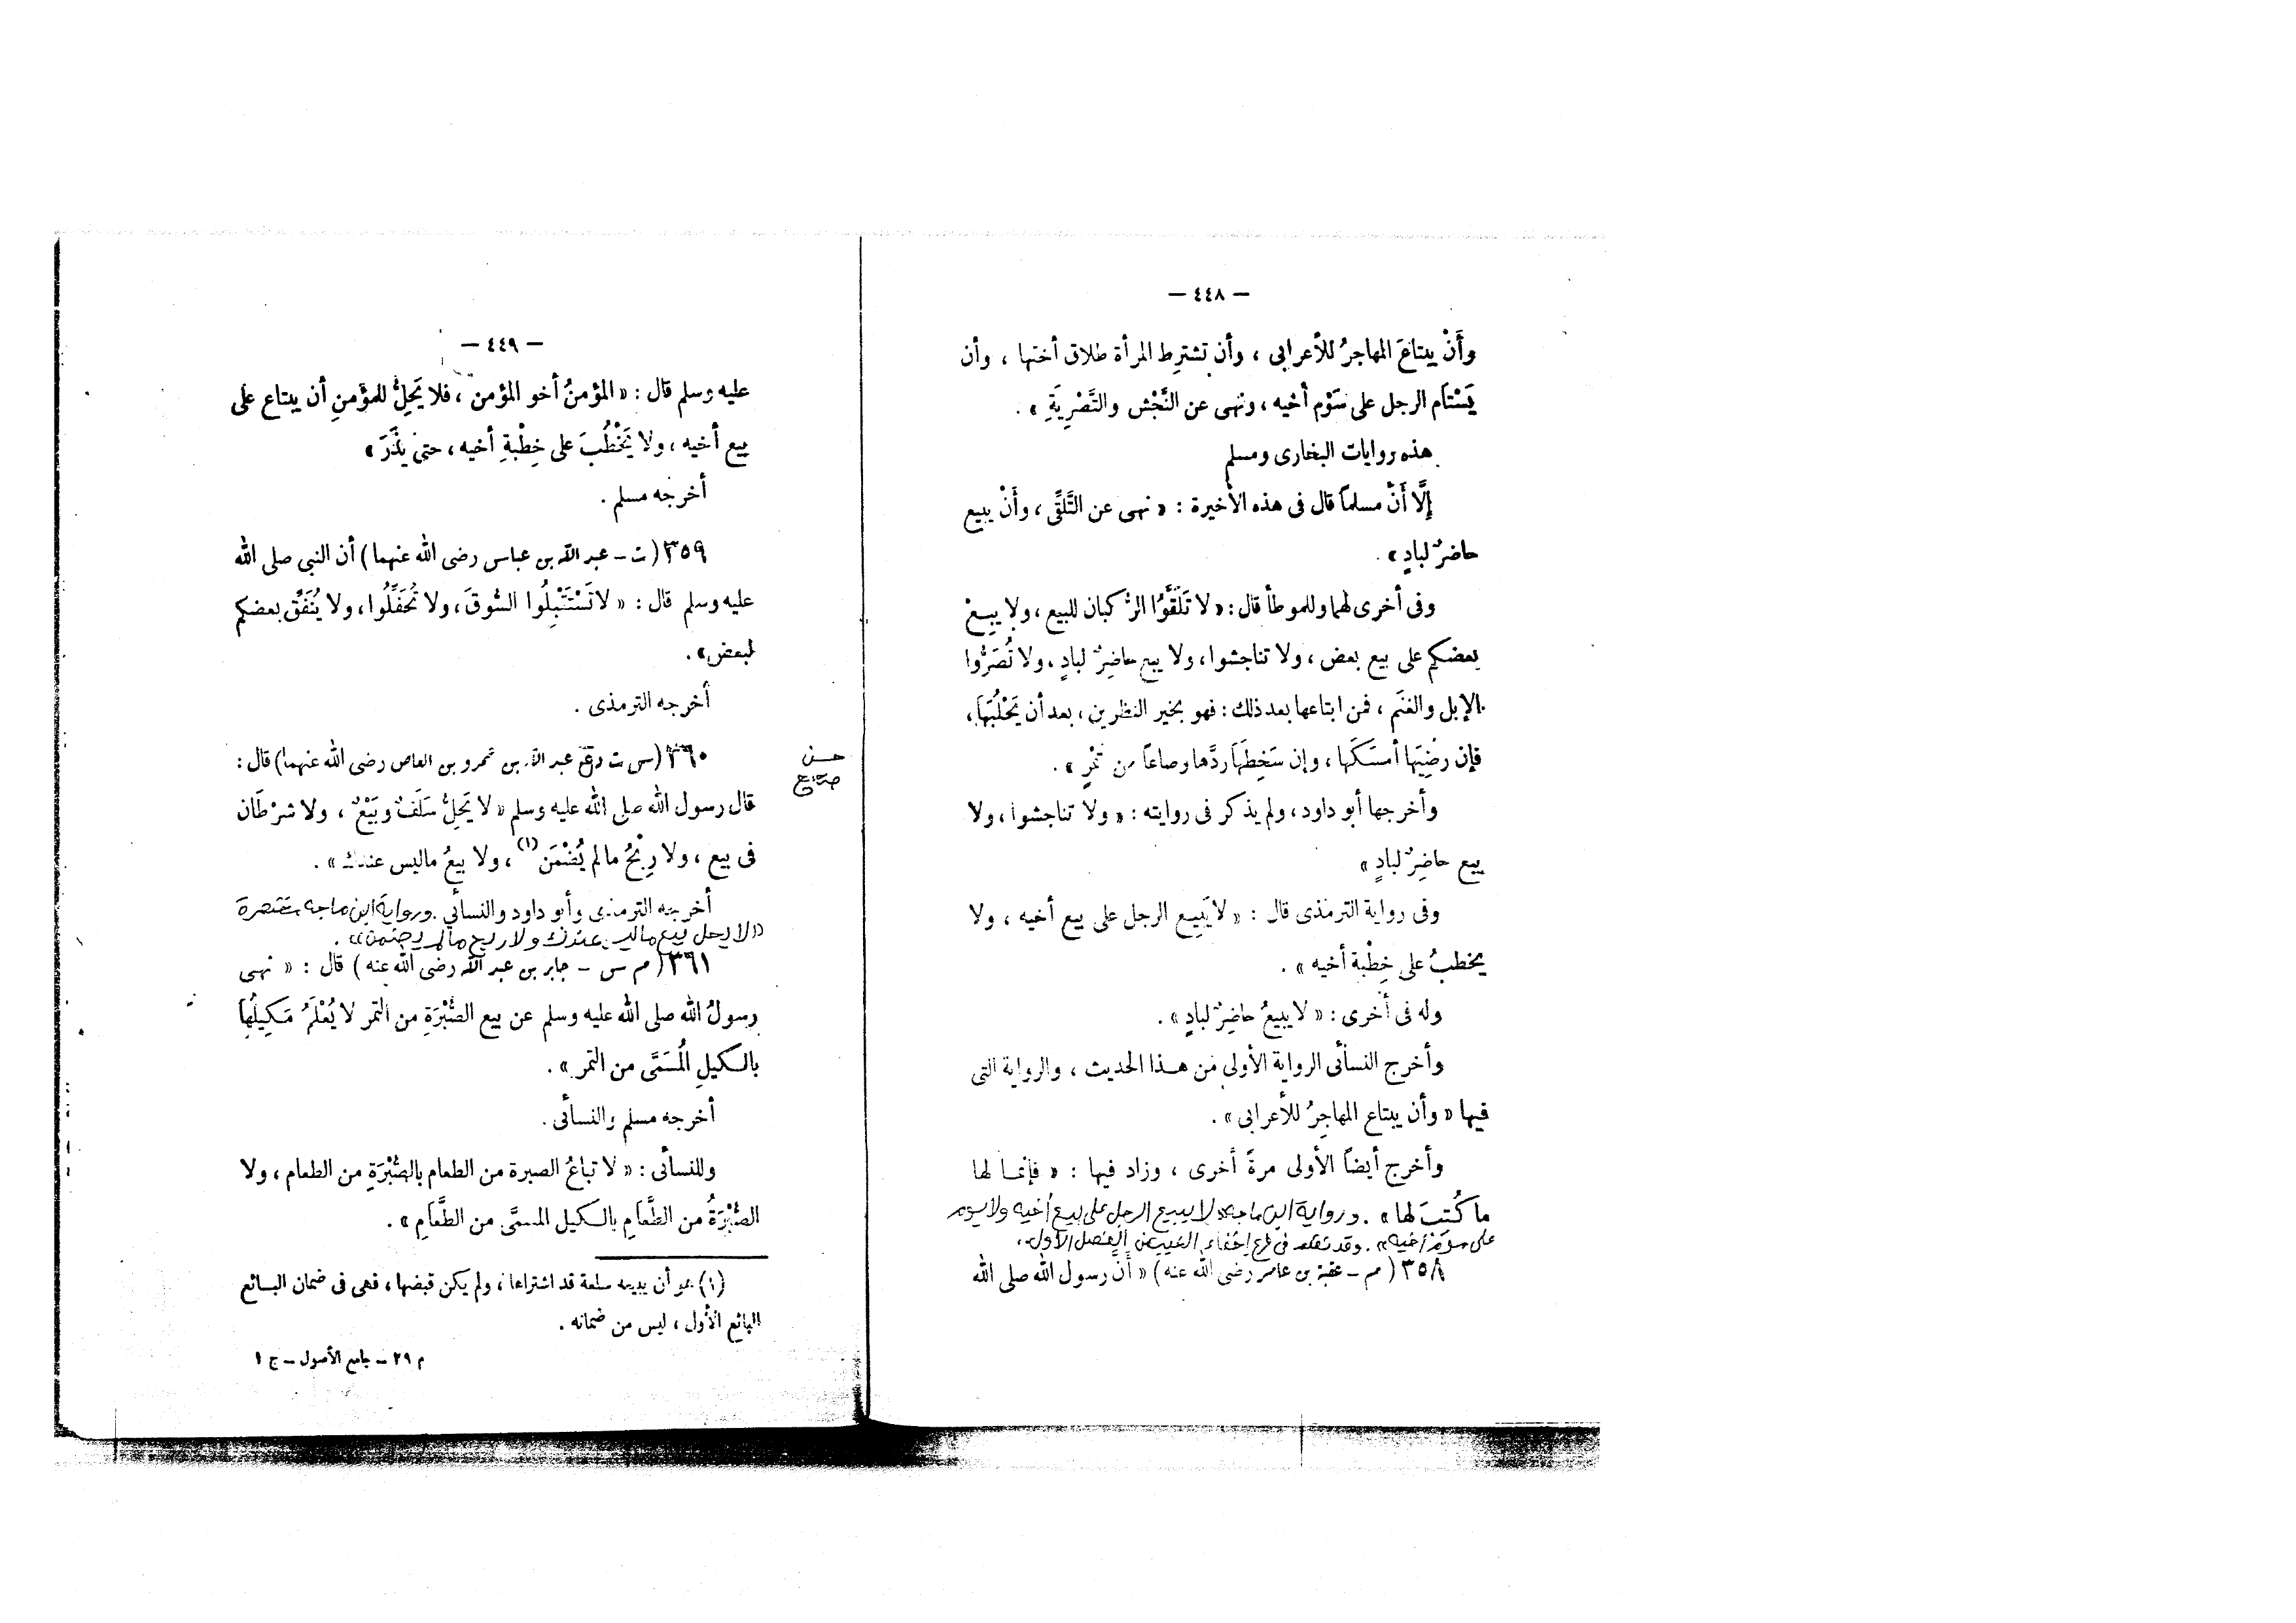 — ٤٤٨ —
وأَنْ يبتاعَ المهاجرُ للأعرابى ، وأن تشترِط المرأة طلاق أختها ، وأن
يَسْتَام الرجل على سَوْم أخيه ، ونهى عن النَّجْش والتَّصْرِيَةِ » .
هذه روايات البخارى ومسلم
إلَّا أنَّ مسلماً قال فى هذه الأخيرة : « نهى عن التَّلقِّى ، وأَنْ يبيع
حاضرٌ لبادٍ » .
وفى أخرى لهما وللموطأ قال : « لا تَلَقَّوُا الرُّكبان للبيع ، ولا يبِعْ
بعضكم على بيع بعض ، ولا تناجشوا ، ولا يبع حاضِرٌ لبادٍ ، ولا تُصَرُّوا
الإبل والغنَم ، فمن ابتاعها بعد ذلك : فهو بخير النظرين ، بعد أن يَحْلُبَهَا ،
فإن رضِيَها أمسَكَها ، وإن سَخِطَهَا ردَّها وصاعاً من تَمْرٍ » .
وأخرجها أبو داود ، ولم يذكر فى روايته : « ولا تناجشوا ، ولا
يبيع حاضِرٌ لبادٍ »
وفى رواية الترمذى قال : « لا يَبِيع الرجل على بيع أخيه ، ولا
يخطبُ على خِطْبة أخيه » .
وله فى أخرى : « لا يبيعُ حاضِرٌ لبادٍ » .
وأخرج النسائى الرواية الأولى من هـذا الحديث ، والرواية التى
فيها « وأن يبتاع المهاجِرُ للأعرابى » .
وأخرج أيضاً الأولى مرةً أخرى ، وزاد فيها : « فإنمـا لها
ما كُتِبَ لها » . ورواية ابن ماجه « لا يبيع الرجل على بيع أخيه ولا يسوم
على سوم أخيه » . وقد تقدم فى فرع إخفاء العيب من الفصل الأول .
٣٥٨ ( م – عقبة بن عامر رضى الله عنه ) « أنَّ رسول الله صلى الله
— ٤٤٩ —
عليه وسلم قال : « المؤمنُ أخو المؤمن ، فلا يَحِلُّ للمؤمنِ أن يبتاع على
بيع أخيه ، ولا يَخْطُبَ على خِطْبةِ أخيه ، حتى يذَرَ »
أخرجه مسلم .
٣٥٩ ( ت – عبد الله بن عباس رضى الله عنهما ) أن النبي صلى الله
عليه وسلم قال : « لا تَسْتَقْبِلُوا السُّوقَ ، ولا تُحَفِّلُوا ، ولا يُنَفِّق بعضكم
لبعض » .
أخرجه الترمذى .
حسن
صحيح
٣٦٠ ( س ت د عبد الله بن عمرو بن العاص رضى الله عنهما ) قال :
قال رسول الله صلى الله عليه وسلم « لا يَحِلُّ سَلَفٌ وبَيْعٌ ، ولا شرْطَان
فى بيع ، ولا رِبْحُ مالم يُضْمَن (١) ، ولا بيعُ ماليس عندك » .
أخرجه الترمذى وأبو داود والنسائي . ورواية ابن ماجه مختصرة
« لا يحل بيع ما ليس عندك ولا ربح مالم يضمن » .
٣٦١ ( م س – جابر بن عبد الله رضى الله عنه ) قال : « نهى
رسولُ الله صلى الله عليه وسلم عن بيع الصُّبْرَةِ من التمر لا يُعْلَمُ مَكِيلُها
بالـكيلِ المُسَمَّى من التمر » .
أخرجه مسلم والنسائى .
وللنسائى : « لا تباعُ الصبرة من الطعام بالصُّبْرَةِ من الطعام ، ولا
الصُّبْرَةُ من الطَّعَامِ بالـكيل المسمَّى من الطَّعَامِ » .
(١) هو أن يبيعه سلعة قد اشتراها ، ولم يكن قبضها ، فهى فى ضمان البـائع
البائع الأول ، ليس من ضمانه .
م ٢٩ – جامع الأصول – ج ١